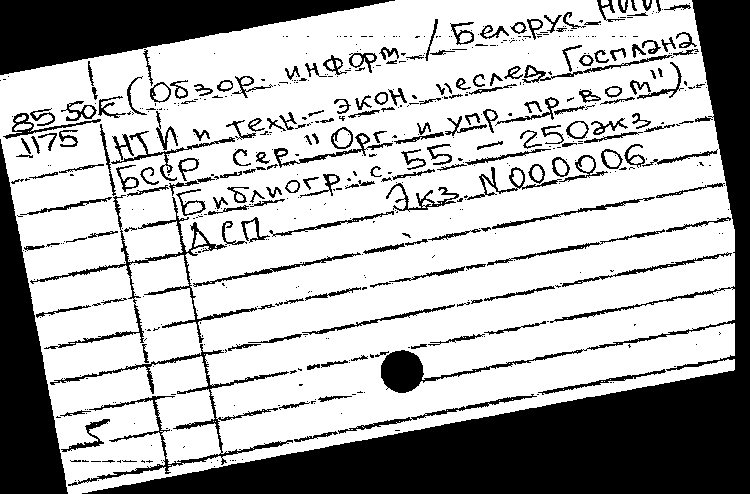 (Обзор. информ. / Белорус. НИИ
85-50к
1175
НТИ и техн.-экон. исслед. Госплана
БССР. Сер. "Орг. и упр. пр-вом").
Библиогр.: с. 55. — 250экз.
ДСП. Экз. N000006.